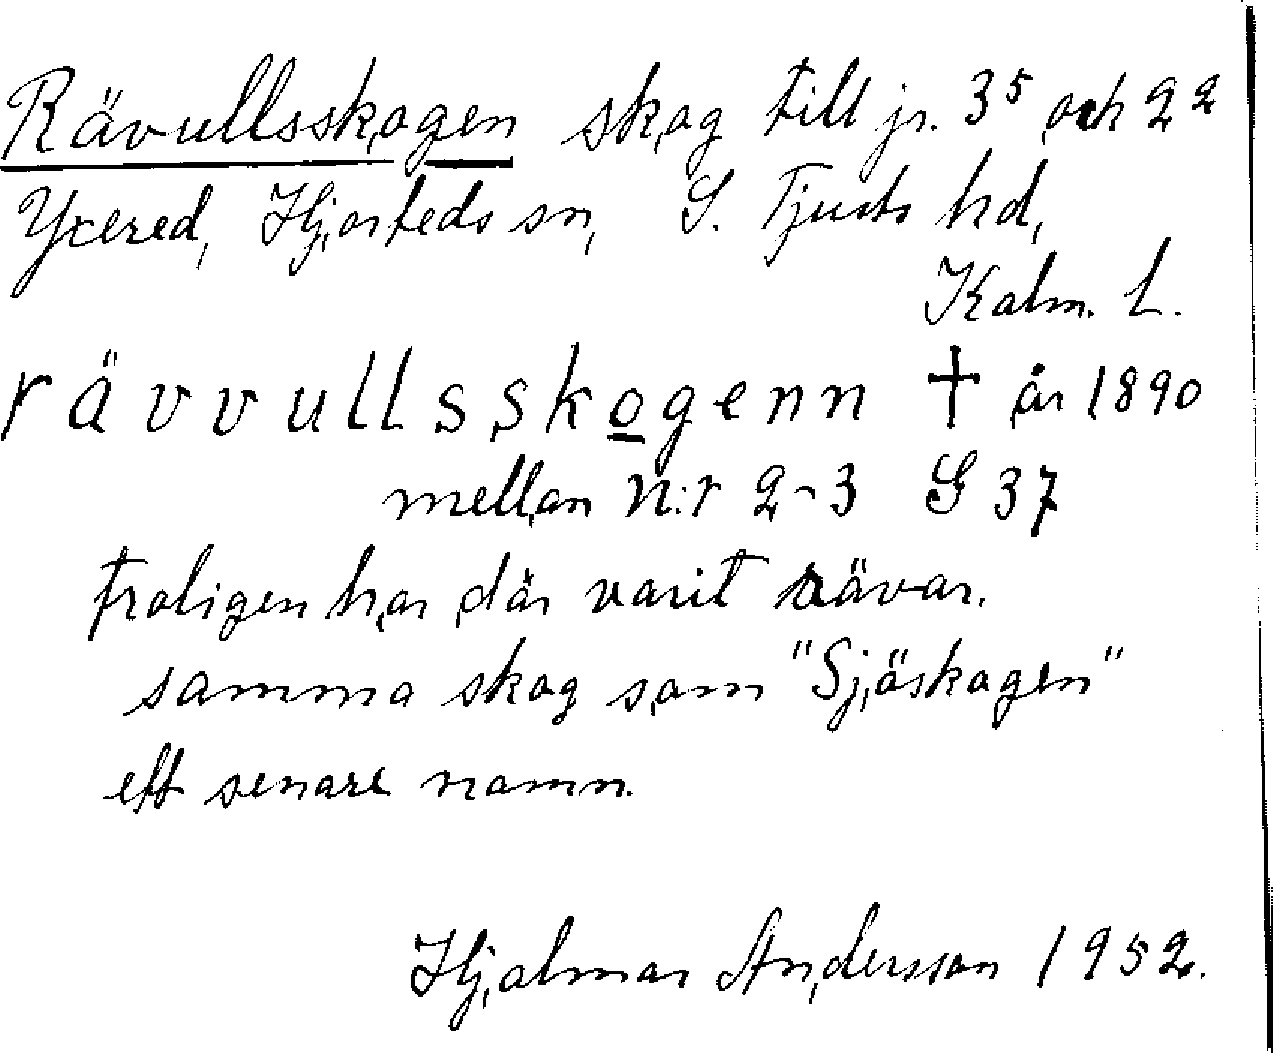 Rävullsskogen skog till jr. 3⁵ och 2²
Yxered, Hjorteds sn, S. Tjusts hd,
Kalm. L.
rävvullsskogenn † år 1890
mellan N:r 2-3 G 37
troligen har där varit rävar.
samma skog som "Sjöskogen"
ett senare namn.
Hjalmar Andersson 1952.